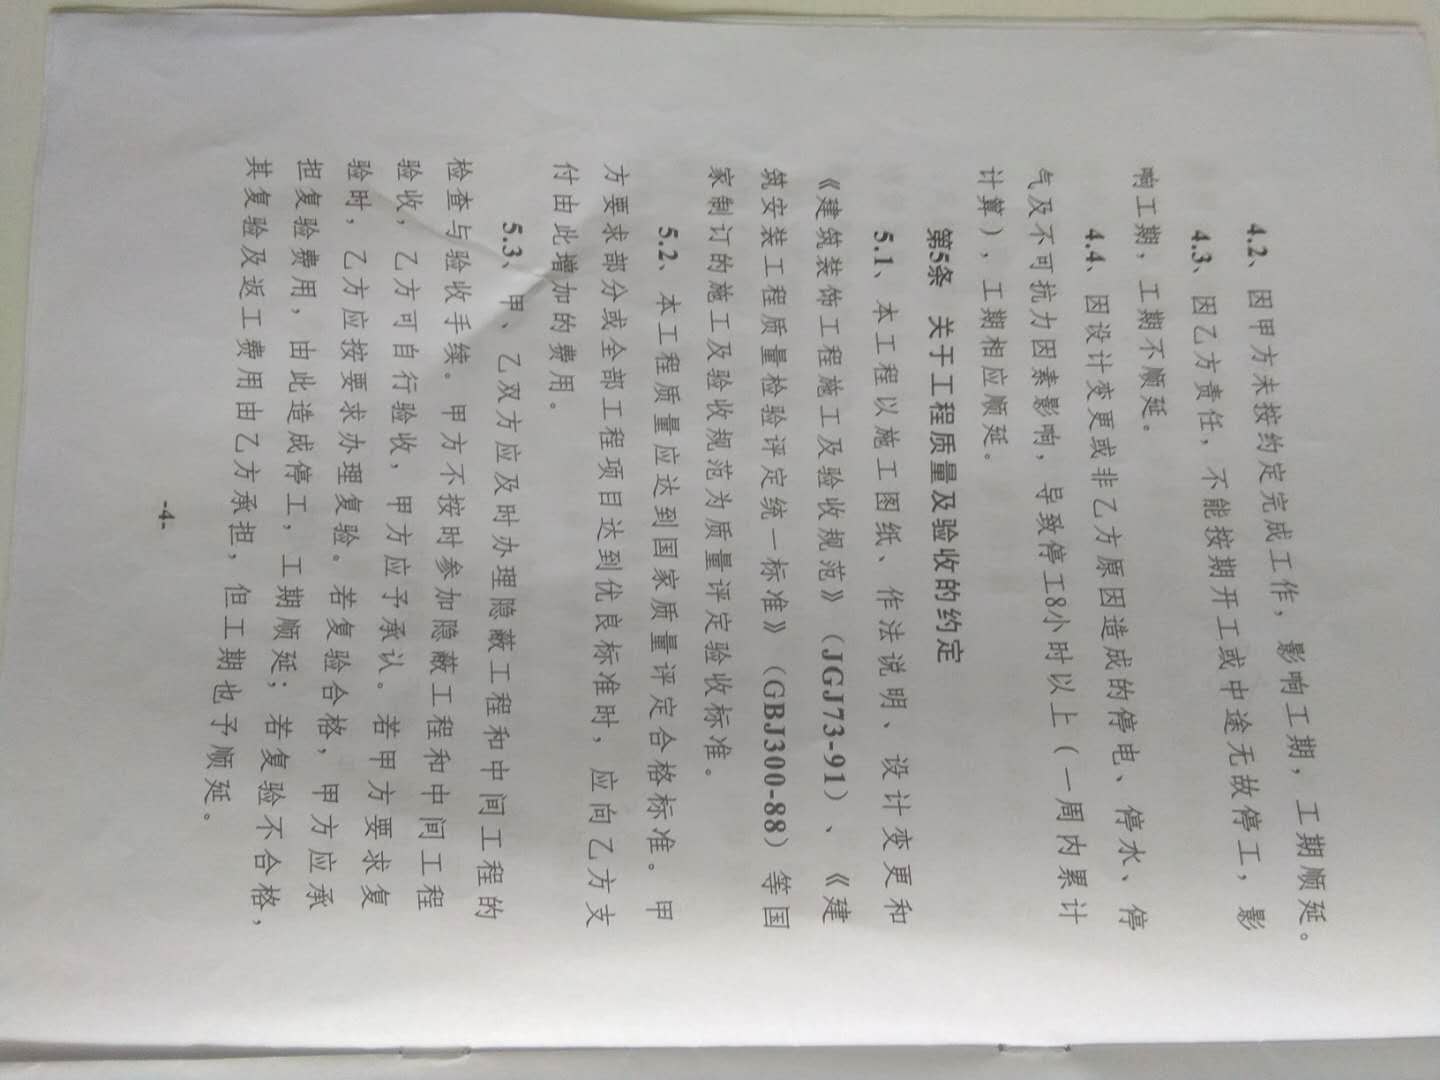 4.2、因甲方未按约定完成工作，影响工期，工期顺延。
4.3、因乙方责任，不能按期开工或中途无故停工，影
响工期，工期不顺延。
4.4、因设计变更或非乙方原因造成的停电、停水、停
气及不可抗力因素影响，导致停工8小时以上（一周内累计
计算），工期相应顺延。
第5条 关于工程质量及验收的约定
5.1、本工程以施工图纸、作法说明、设计变更和
《建筑装饰工程施工及验收规范》（JGJ73-91）、《建
筑安装工程质量检验评定统一标准》（GBJ300-88）等国
家制订的施工及验收规范为质量评定验收标准。
5.2、本工程质量应达到国家质量评定合格标准。甲
方要求部分或全部工程项目达到优良标准时，应向乙方支
付由此增加的费用。
5.3、甲、乙双方应及时办理隐蔽工程和中间工程的
检查与验收手续。甲方不按时参加隐蔽工程和中间工程
验收，乙方可自行验收，甲方应予承认。若甲方要求复
验时，乙方应按要求办理复验。若复验合格，甲方应承
担复验费用，由此造成停工，工期顺延；若复验不合格，
其复验及返工费用由乙方承担，但工期也予顺延。
-4-